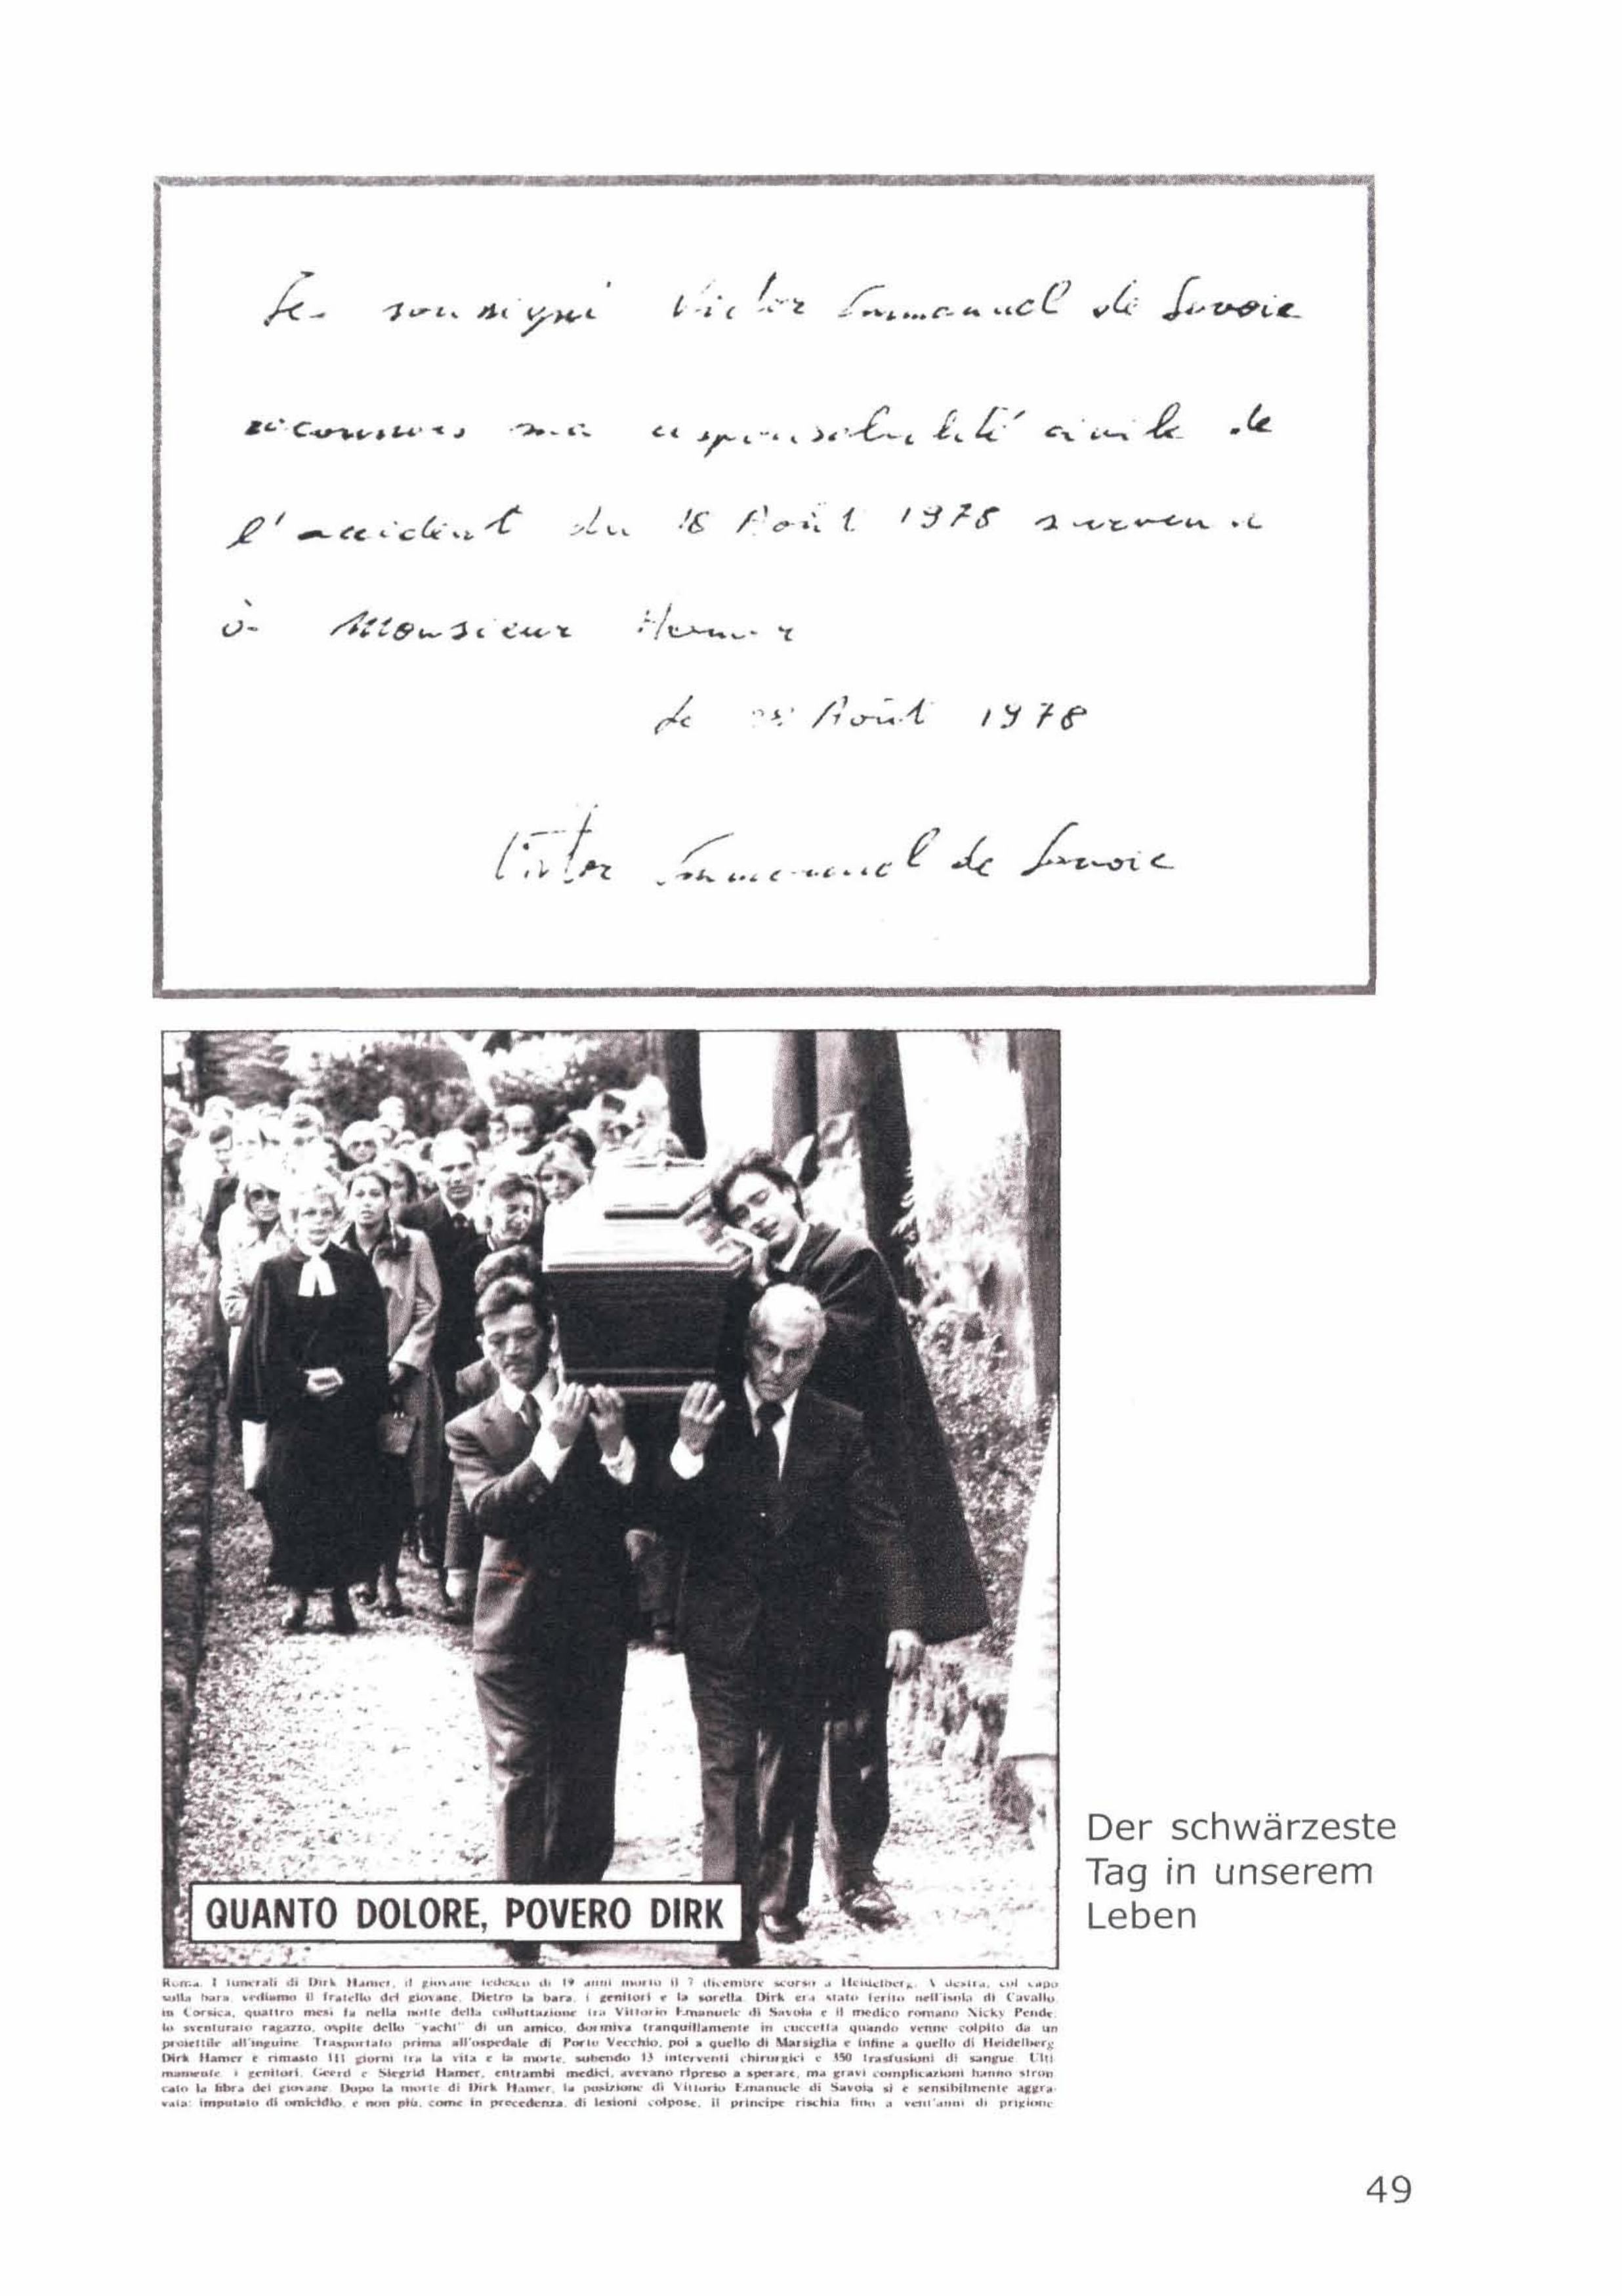 Je soussigné Victor Emmanuel de Savoie
reconnais ma responsabilité civile de
l'accident du 18 Août 1978 survenu
à Monsieur Hamer
le Août 1978
Victor Emmanuel de Savoie
QUANTO DOLORE, POVERO DIRK
Der schwärzeste
Tag in unserem
Leben
Roma. I funerali di Dirk Hamer, il giovane tedesco di 19 anni morto il 7 dicembre scorso a Heidelberg. A destra, col capo
sulla bara, vediamo il fratello del giovane. Dietro la bara, i genitori e la sorella. Dirk era stato ferito nell'isola di Cavallo,
in Corsica, quattro mesi fa nella notte della colluttazione tra Vittorio Emanuele di Savoia e il medico romano Nicky Pende:
lo sventurato ragazzo, ospite dello "yacht" di un amico, dormiva tranquillamente in cuccetta quando venne colpito da un
proiettile all'inguine. Trasportato prima all'ospedale di Porto Vecchio, poi a quello di Marsiglia e infine a quello di Heidelberg
Dirk Hamer è rimasto 111 giorni tra la vita e la morte, subendo 13 interventi chirurgici e 350 trasfusioni di sangue. Ulti
mamente, i genitori, Geerd e Siegrid Hamer, entrambi medici, avevano ripreso a sperare, ma gravi complicazioni hanno stron
cato la fibra del giovane. Dopo la morte di Dirk Hamer, la posizione di Vittorio Emanuele di Savoia si è sensibilmente aggra-
vata: imputato di omicidio, e non più, come in precedenza, di lesioni colpose, il principe rischia fino a vent'anni di prigione
49